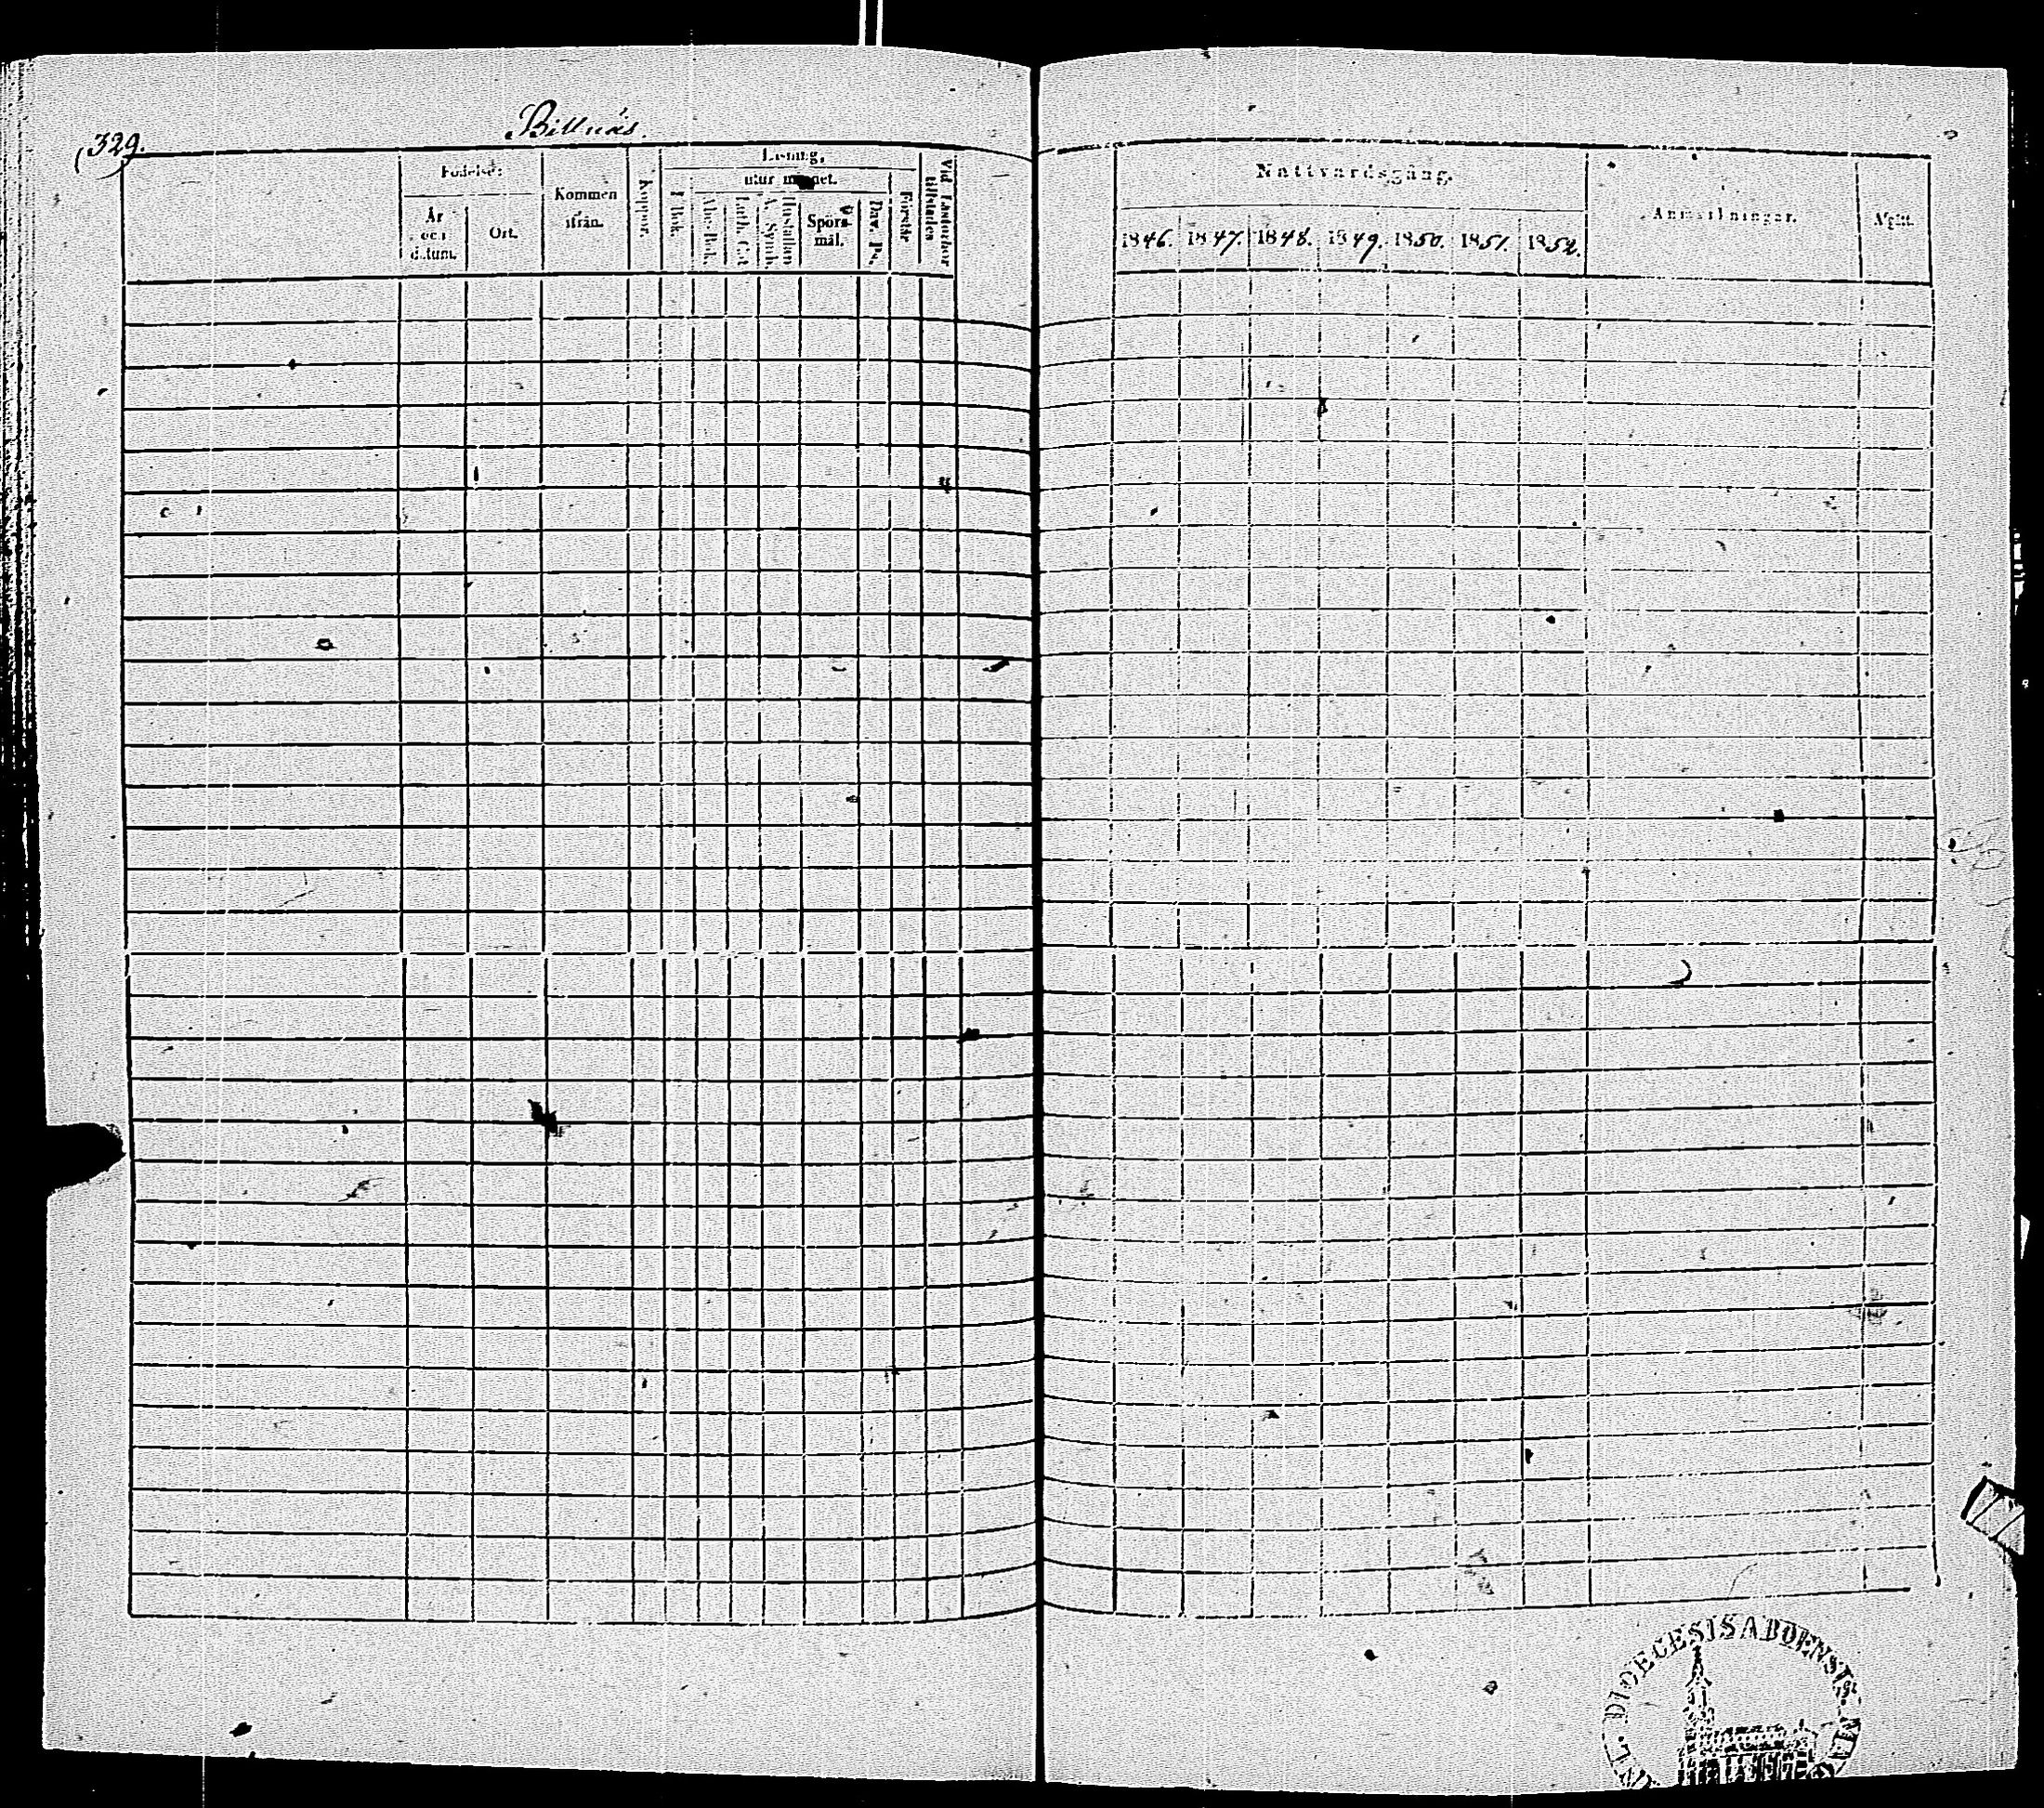 329.
Billnäs.
Födelse:
År och datum.
Ort.
Kommen ifrån.
Koppor.
Läsning,
I Bok.
utur minnet.
Abc-Bok.
Luth. Cat.
Hustaflan A. Symb.
Spörs-mål.
Dav. Ps.
Förstår
Vid Läsförhör tillstädes
Nattvardsgång.
1846. 1847. 1848. 1849. 1850. 1851. 1852.
Anmärkningar.
Afgått.
DIOECESIS ABOENSIS